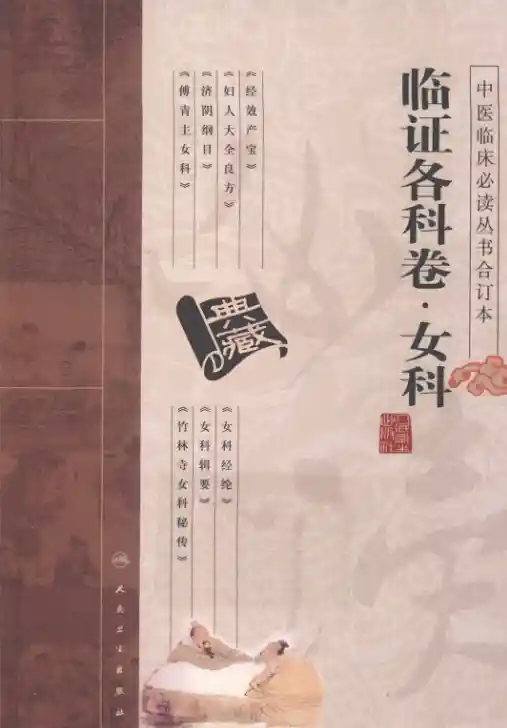 中医临床必读丛书合订本
临证各科卷·女科
《经效产宝》
《妇人大全良方》
《济阴纲目》
《傅青主女科》
典藏
《女科经纶》
《女科辑要》
《竹林寺女科秘传》
人民卫生出版社